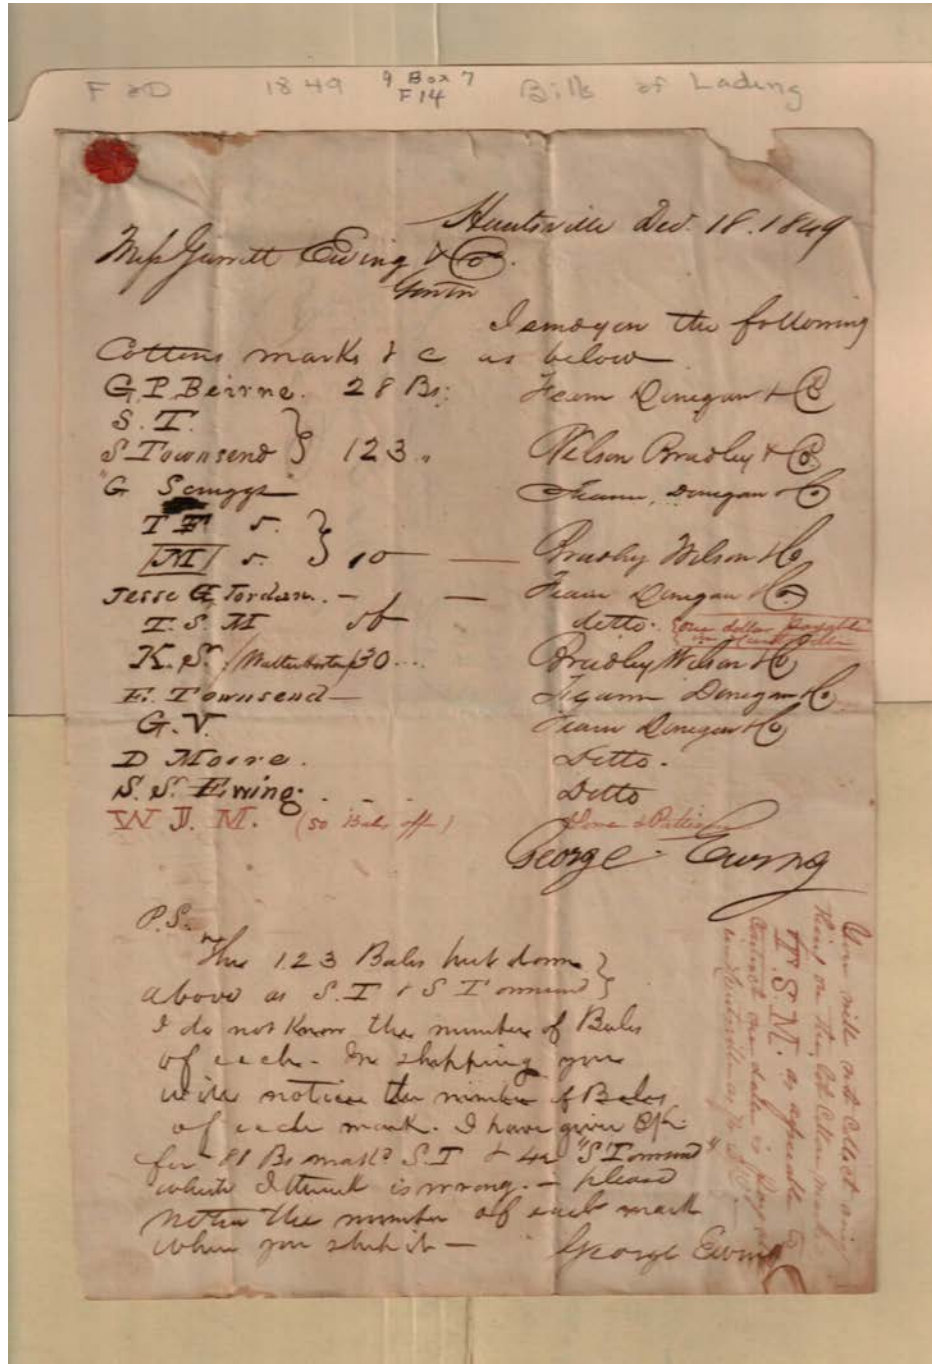 F & D 1849 9 Box 7 Bills of Lading
F14
Huntsville Dec. 18. 1849
Mess Garrett Ewing & Co.
I send you the following
Cottons marks & c as below
G. P. Beirne. 28 Bs. Fearn Donegan & Co
S. T.
S Townsend } 123 " Wilson Bradley & Co
"G Scruggs Fearn, Donegan & Co
T F 5.
M 5. } 10 — Bradley Wilson & Co
Jesse G Jordan. — — Fearn Donegan & Co
T. S. M ditto. one dollar payable
in Huntsville
K. S. 30 ... Bradley Wilson & Co
E. Townsend — Fearn Donegan & Co
G. V. Fearn Donegan & Co
D Moore. Ditto.
S. S. Ewing. Ditto
W J. M. (50 Bales off)
George Ewing
P.S.
The 123 Bales put down }
above as S. T & S Townsend }
I do not Know the number of Bales
of each. In shipping you
will notice the number of Bales
of each mark. I have given
for 81 Bs markd S T & 42 "S Townsend"
which I think is wrong. — please
notice the number of each mark
when you ship it —
George Ewing
You will not Collect any
thing on the lot Cotton marked
T. S. M. as agreeable to
Contract one dollar is payable
in Huntsville